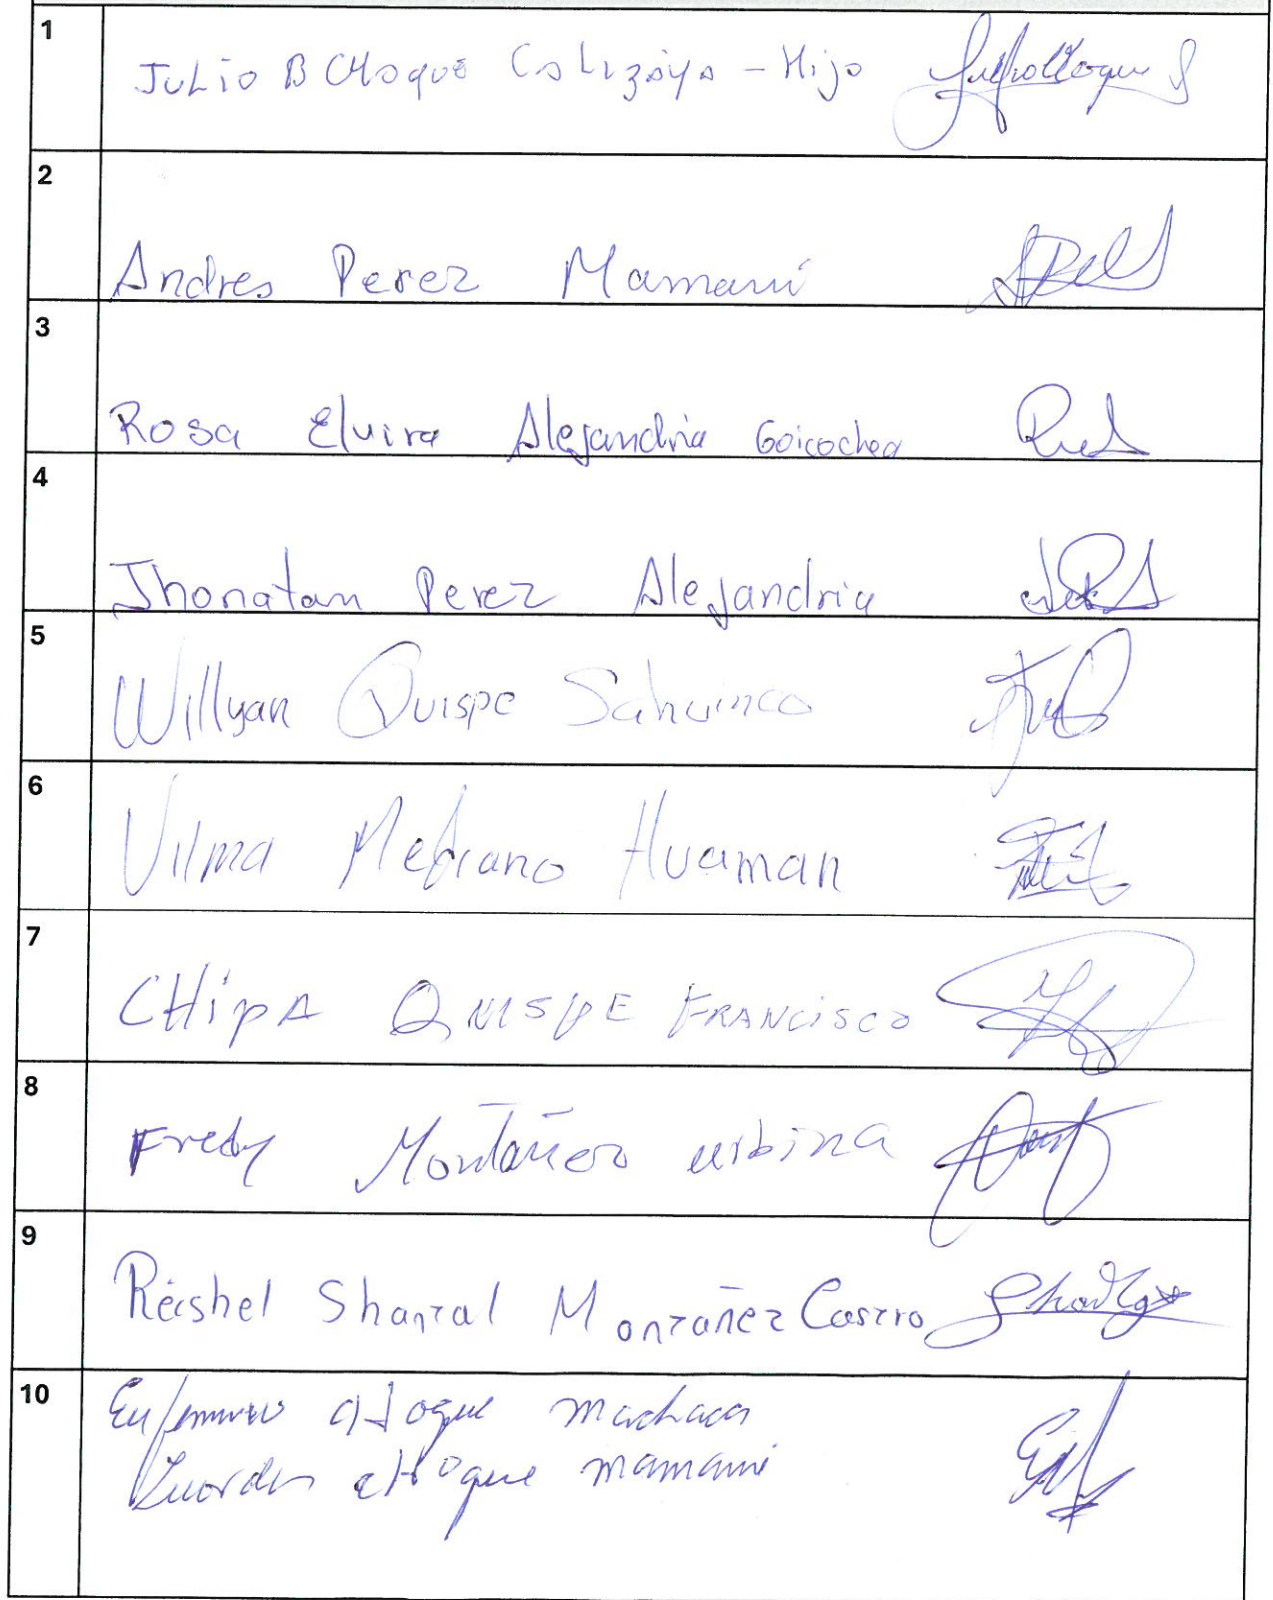 1
Julio B Choque Calizaya - Hijo
2
Andres Perez Mamani
3
Rosa Elvira Alejandria Goicochea
4
Jhonatan Perez Alejandria
5
Willyan Quispe Sahuinco
6
Vilma Medrano Huaman
7
CHipA QUISPE FRANCISCO
8
Fredy Montañez urbina
9
Reishel Shantal Montañez Castro
10
choque machaca
choque mamani